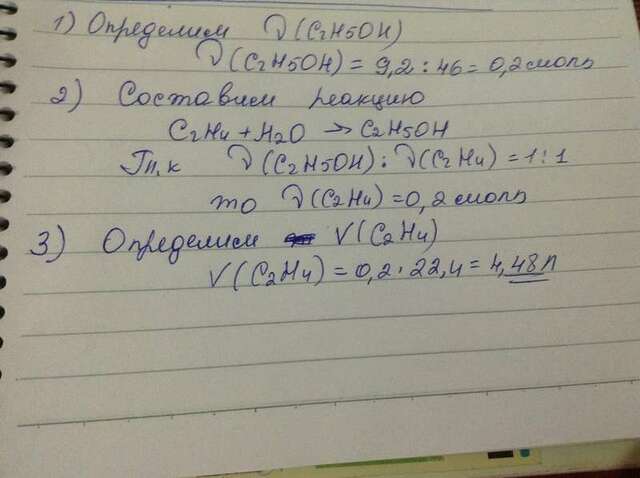 1) Определим ν(C2H5OH)
ν(C2H5OH) = 9,2 : 46 = 0,2 моль
2) Составим реакцию
C2H4 + H2O → C2H5OH
Т.к ν(C2H5OH) : ν(C2H4) = 1 : 1
то ν(C2H4) = 0,2 моль
3) Определим V(C2H4)
V(C2H4) = 0,2 · 22,4 = 4,48л